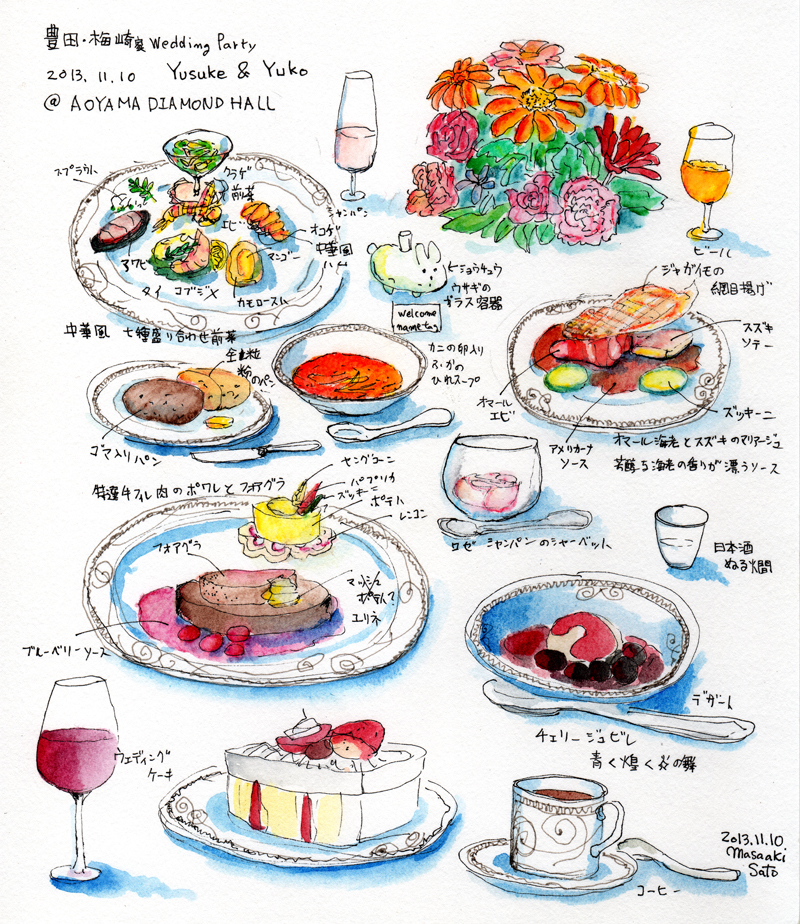 豊田・梅崎家 Wedding Party
2013. 11. 10 Yusuke & Yuko
@ AOYAMA DIAMOND HALL
スプラウト
クラゲ
前菜
エビ
オコゲ
中華風
ハム
マンゴー
アワビ
タイ コブジメ
カモロースハム
中華風 七種盛り合わせ前菜
シャンパン
ビール
ヒョウチュウ
ウサギの
ガラス容器
welcome
name tag
ジャガイモの
網目揚げ
スズキ
ソテー
ズッキーニ
オマール
エビ
アメリカーナ
ソース
オマール海老とスズキのマリアージュ
芳醇な海老の香りが漂うソース
全粒
粉のパン
ゴマ入りパン
カニの卵入り
ふかの
ひれスープ
特選牛フィレ肉のポワレとフォアグラ
ヤングコーン
パプリカ
ズッキーニ
ポテト
レンコン
フォアグラ
マッシュ
ポテト?
エリンギ
ブルーベリーソース
ロゼ シャンパンのシャーベット
日本酒
ぬる燗
デザート
チェリージュビレ
青く煌く炎の舞
ウェディング
ケーキ
コーヒー
2013.11.10
Masaaki
Sato